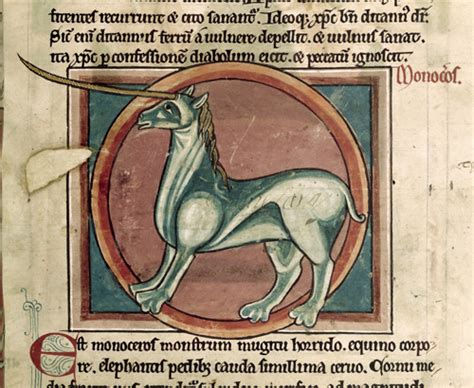 fitentes recurrunt & cito sanant᷑. Ideoq; xp̄c bn̄ ditann᷒ dr̄.
Sic̄ eni ditannus ferrū a uulnere depellit & uulnus sanat.
ita xp̄c p confessionē diabolum eicit. & peccatū ignoscit.
Monoc̄os.
Est monoceros monstrum mugitu horrido. equino corpo
re. elephantis pedib; cauda simillima ceruo. Cornu me